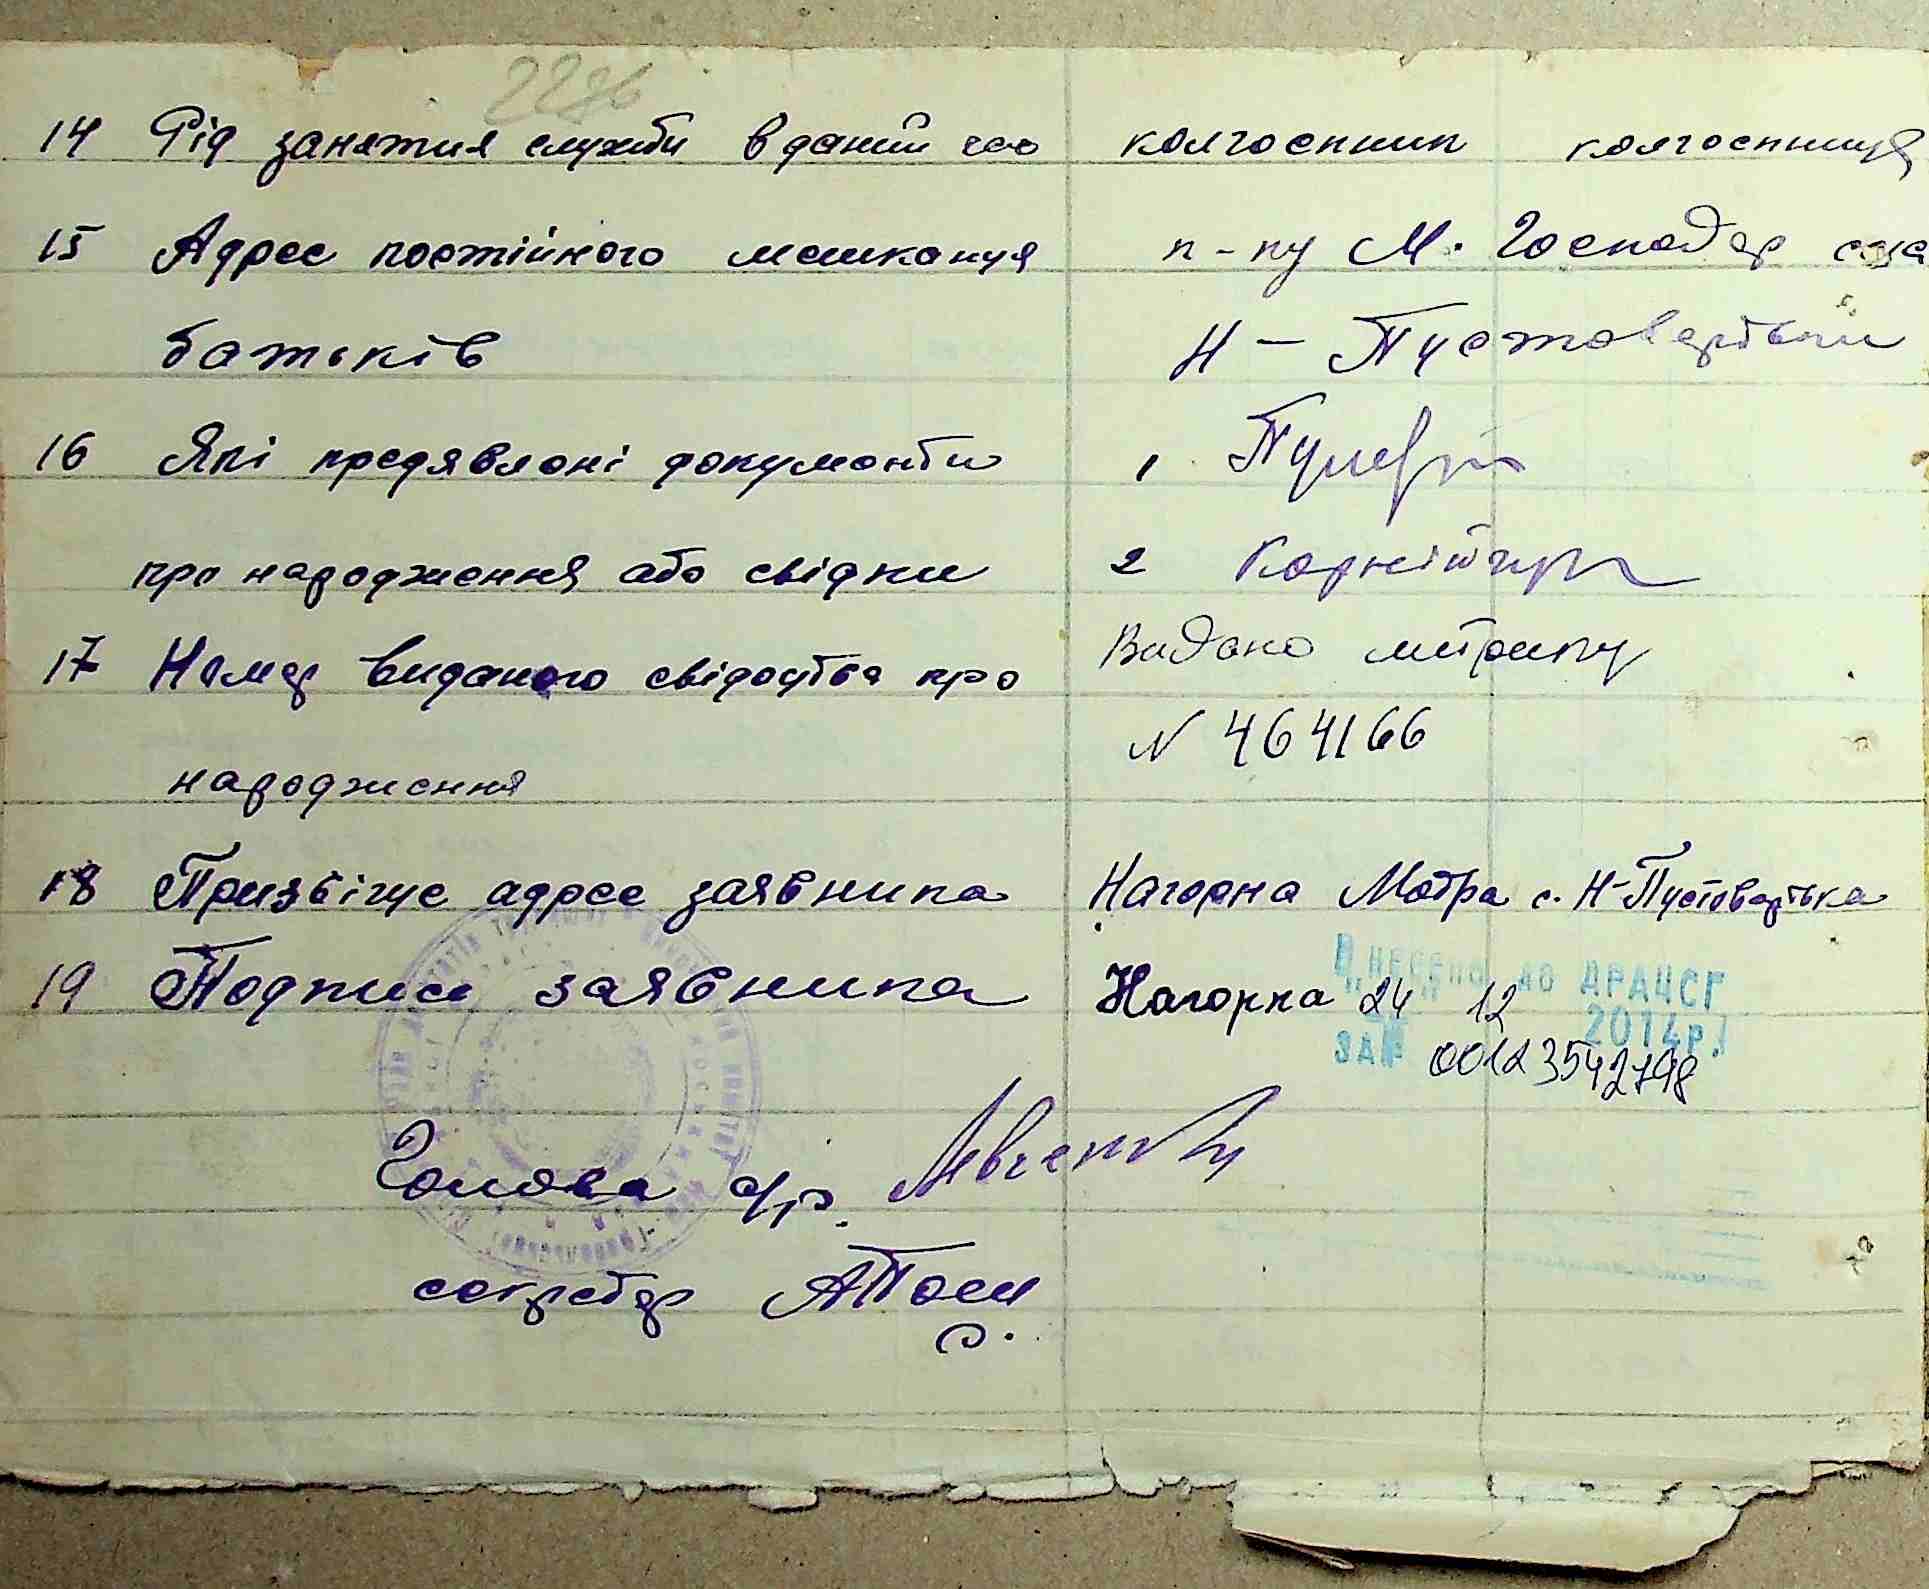 2286
14 Рід занятия служби в даний час колгоспник колгоспниця
15 Адрес постійного мешканця п-ку М. Господар села
батьків Н-Пустоварівки
16 Які предявлоні документи 1
про народження або свідки 2
17 Номер виданого свідоцтва про Видано метрику
народження N 464166
18 Призвіще адрес заявника Нагорна Мотря с. Н-Пустоварівка
Внесено до ДРАЦСГ
19 Подпись заявника Нагорна 24 12 2014р.
ЗАР 00123542798
Голова с/р. Левченко
секретар